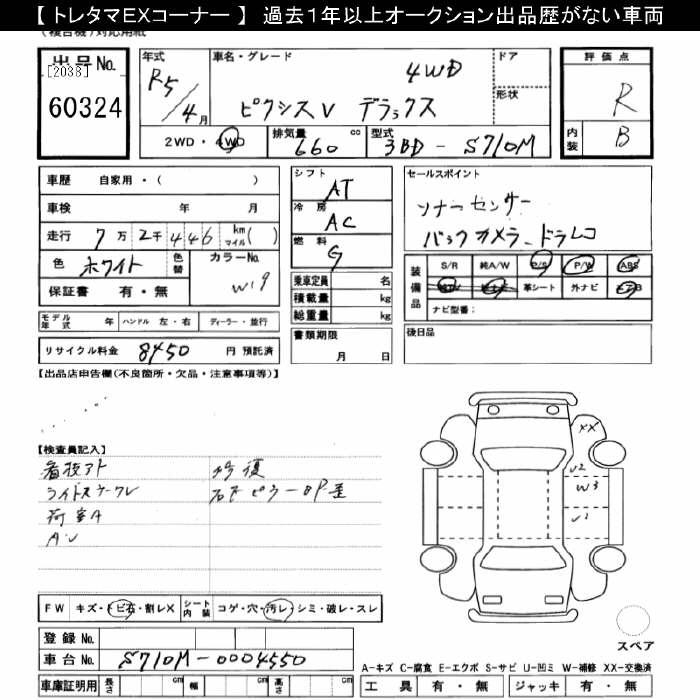 【 トレタマEXコーナー 】 過去1年以上オークション出品歴がない車両
出品No.
[2038]
60324
年式
R5/4月
車名・グレード
4WD
ピクシスV デラックス
ドア
形状
評価点
R
内装
B
2WD・4WD
排気量
660
cc
型式
3BD-S710M
車歴 自家用・( )
車検 年 月
走行 7万2千446 km マイル( )
色 ホワイト 色替
カラーNo.
W19
保証書 有・無
シフト
AT
冷房
AC
燃料
G
乗車定員 名
積載量 kg
総重量 kg
セールスポイント
ソナーセンサー
バックカメラ、ドラレコ
装備品
S/R 純A/W P/S P/W ABS
革シート 外ナビ エアB
ナビ型番:
モデル年式 年 ハンドル 左・右 ディーラー・並行
リサイクル料金 8450 円 預託済
書類期限
月 日
後日品
【出品店申告欄(不良箇所・欠品・注意事項等)】
【検査員記入】
看板アト
修復
荷室A
AU
XX
U2
W3
U1
FW キズ・トビ石・割レX シート内装 コゲ・穴・汚レ・シミ・破レ・スレ
登録No.
車台No. S710M-0004550
スペア
A-キズ C-腐食 E-エクボ S-サビ U-凹ミ W-補修 XX-交換済
車庫証明用 長さ cm 幅 cm 高さ cm
工具 有・無 ジャッキ 有・無